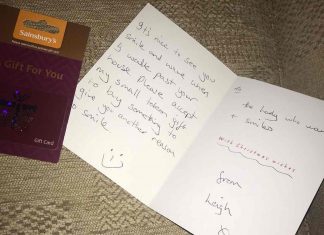 Sainsbury's
A Gift For You
Gift Card
It's nice to see you
smile and wave when
I walk past your
house. Please accept
my small token gift
to buy something to
give you another reason
to smile.
To the lady who waves
+ smiles
With Christmas wishes
from
Leigh
x